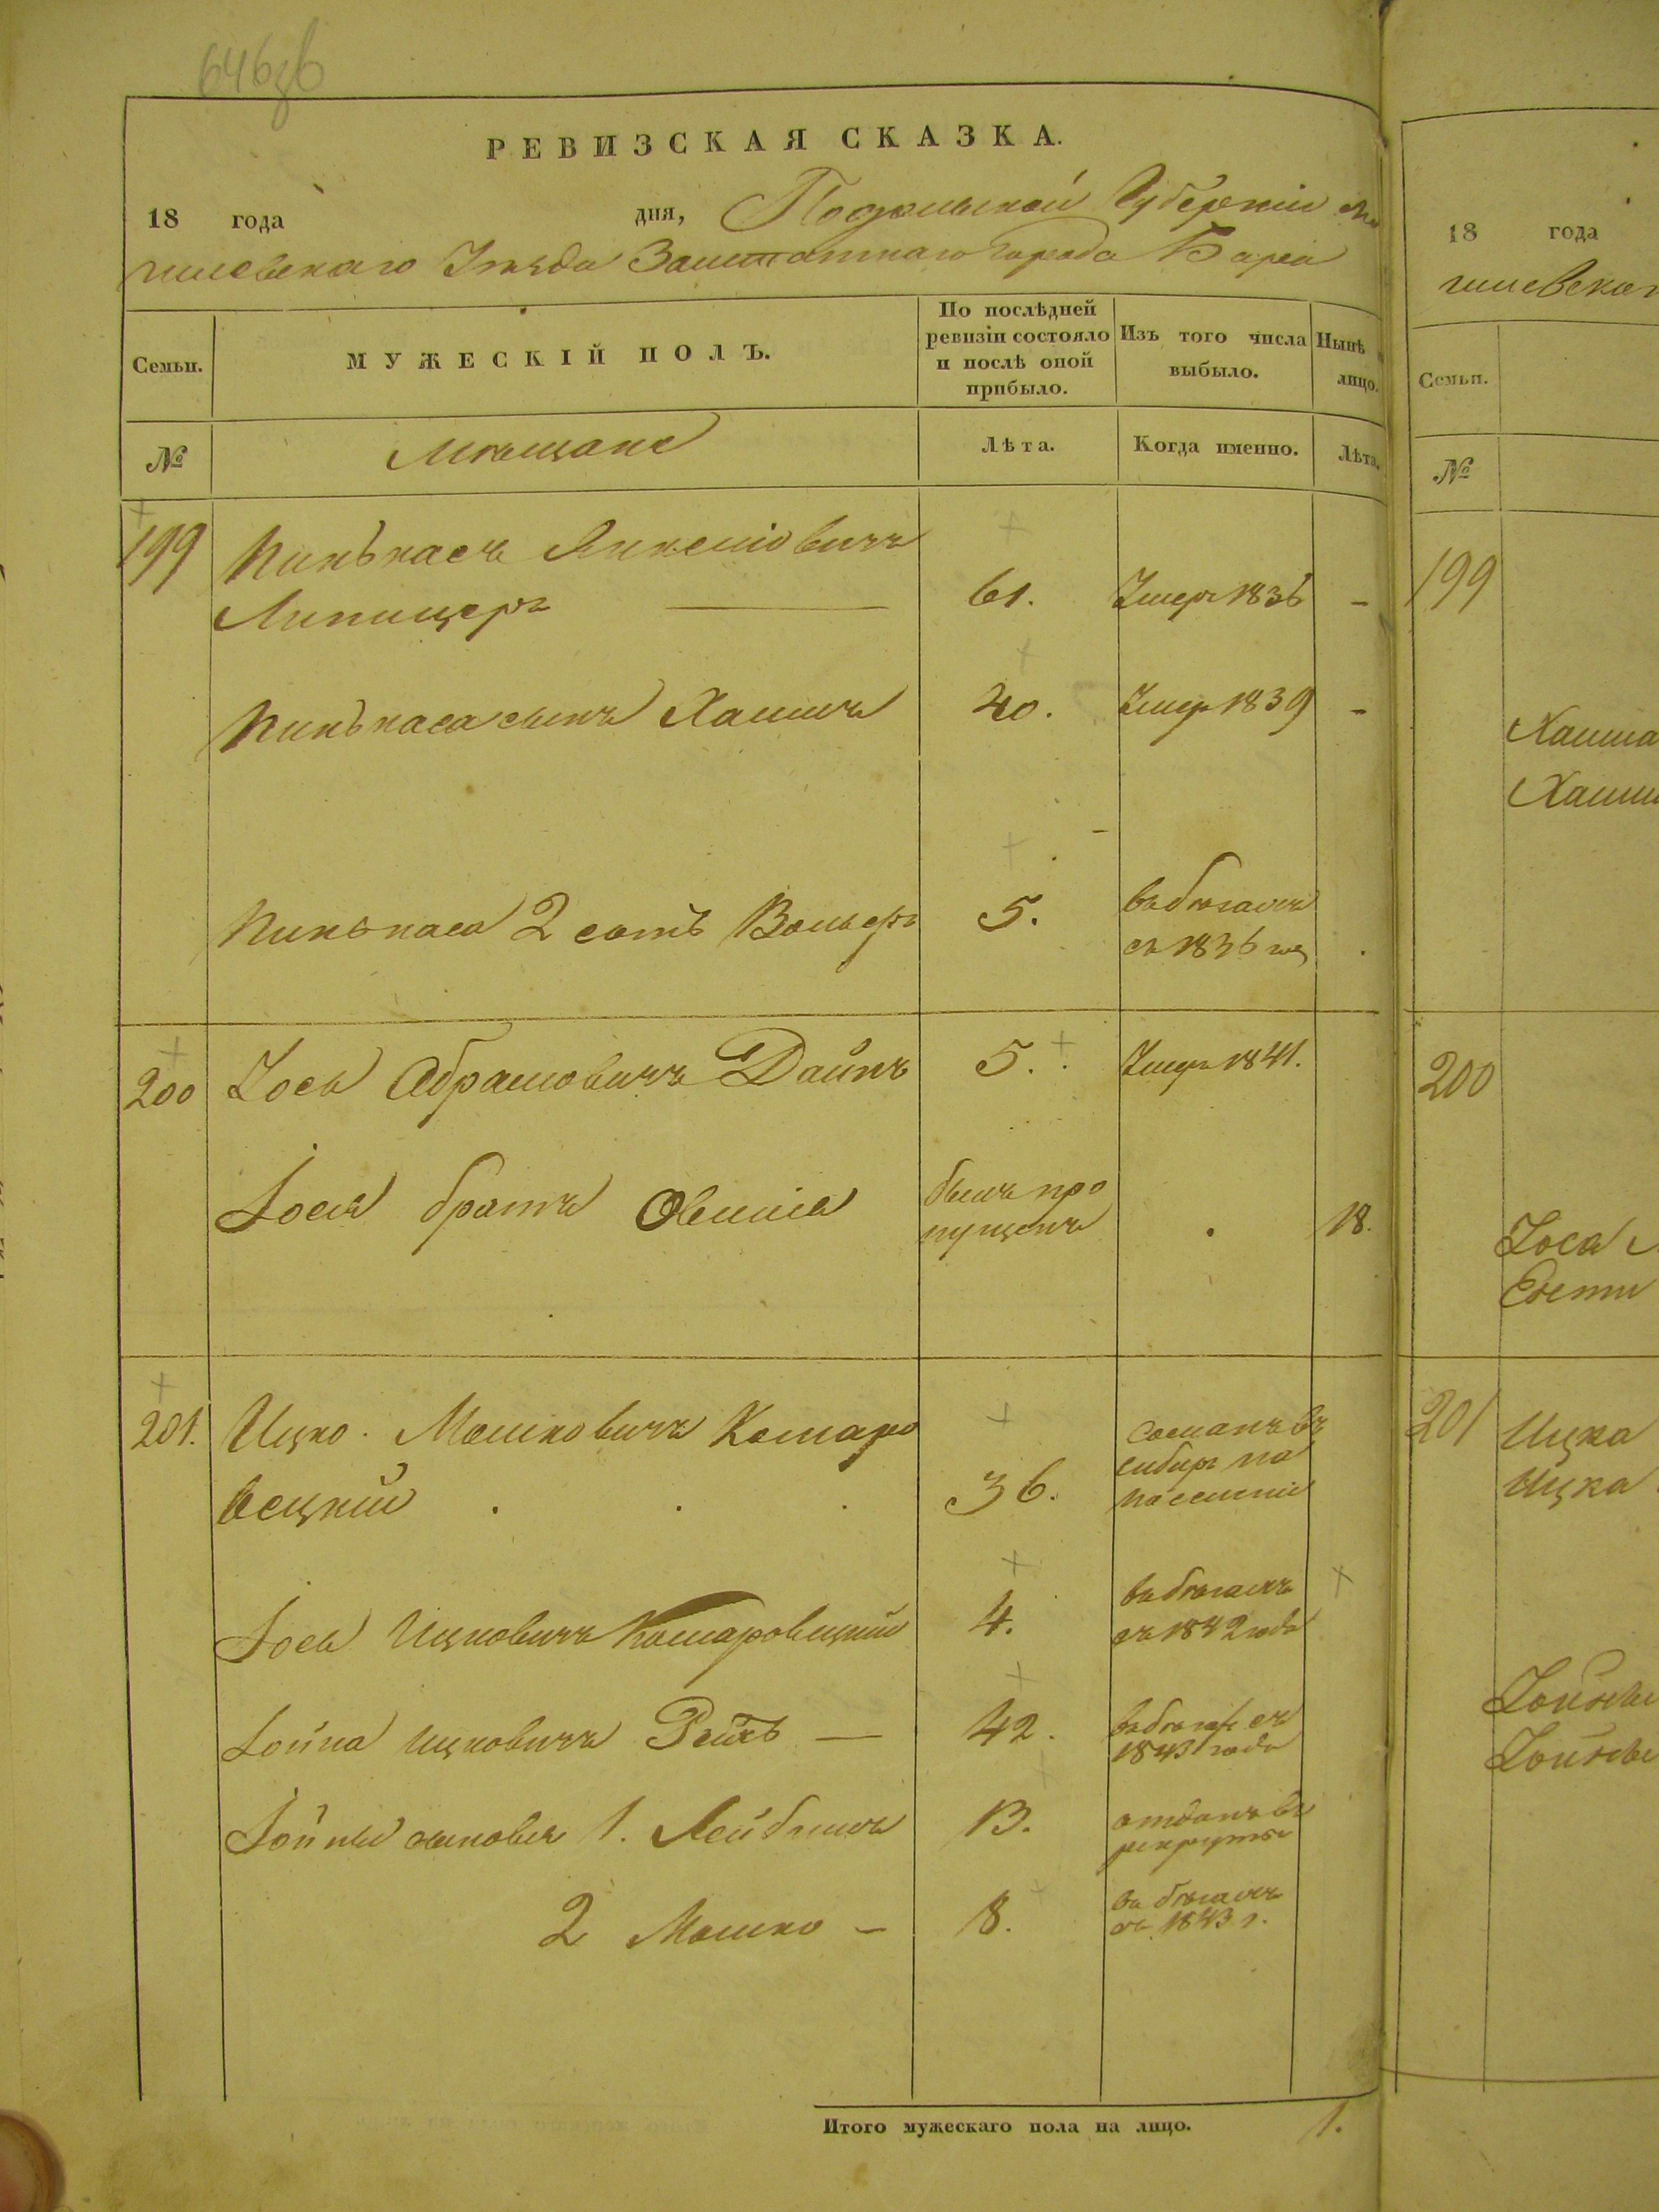 646зв
РЕВИЗСКАЯ СКАЗКА.
18 года дня, Подольской Губерніи Мо
гилевскаго Уѣзда Заштатнаго города Бара
Семьи.
МУЖЕСКІЙ ПОЛЪ.
По послѣдней
ревизіи состояло
и послѣ оной
прибыло.
Изъ того числа
выбыло.
Нынѣ
лицо.
№
Мѣщане
Лѣта.
Когда именно.
Лѣта.
199 Пинькасъ Янкеліовичъ
Липицеръ 61. Умеръ 1836 –
Пинькаса сынъ Хаимъ 40. Умеръ 1839 –
Пинькаса 2 сынъ Вольфъ 5. въ бѣгахъ
съ 1836 года
200 Іось Абрамовичъ Дайнъ 5. Умеръ 1841.
Іося братъ Овшія былъ про
пущенъ 18.
201. Ицко Мошковичъ Комаро
вецкий 36.
сосланъ въ
сибирь на
поселеніе
Іось Ицковичъ Комаровецкий 4. въ бѣгахъ
съ 1842 года
Іойна Ицковичъ 42. въ бѣгахъ съ
1843 года
Іойны сыновья 1. Лейбишъ 13. отданъ въ
рекруты
2 Мошко – 8. въ бѣгахъ
съ 1843 г.
Итого мужескаго пола на лицо. 1.
18 года
гилевскаг
Семьи.
№
199
Хаима
Хаим
200
Іося
201 Ицка
Ицка
Іойны
Іойны